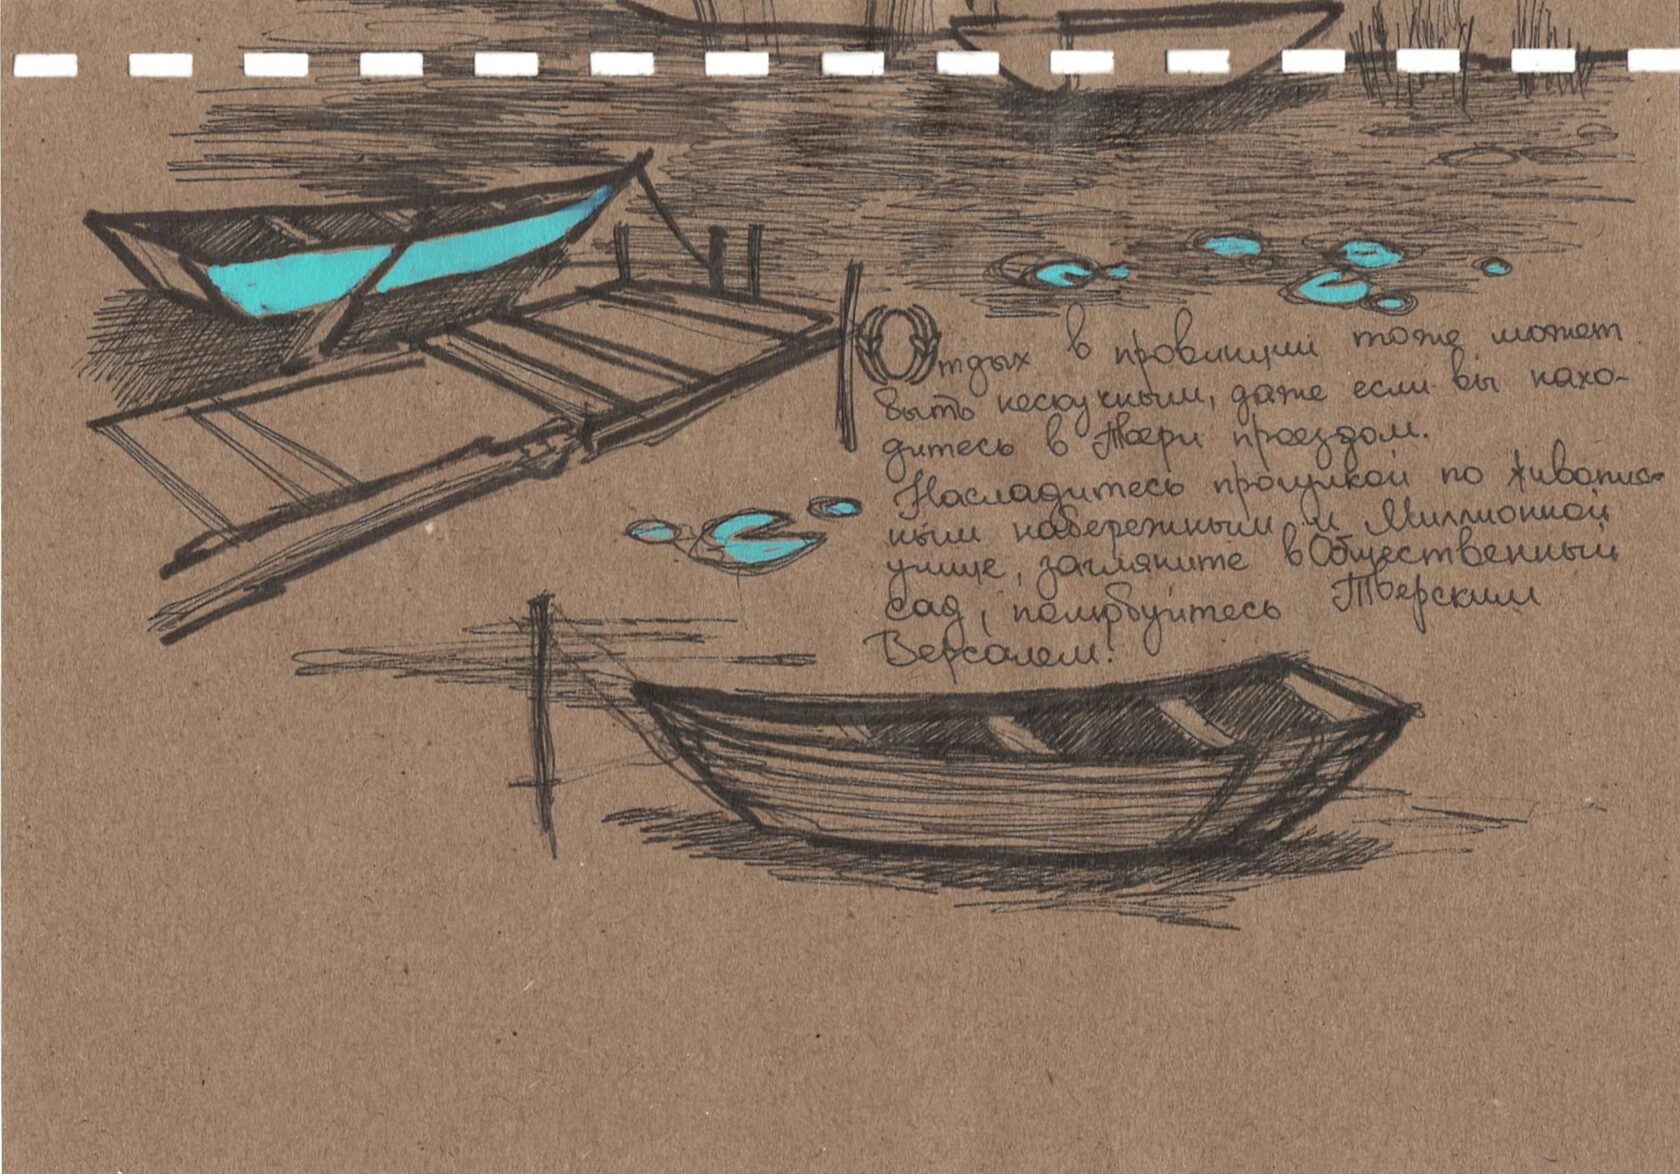 Отдых в провинции тоже может
быть нескучным, даже если вы нахо-
дитесь в Твери проездом.
Насладитесь прогулкой по живопис-
ным набережным и Миллионной
улице, загляните в Общественный
сад, полюбуйтесь Тверским
Версалем!